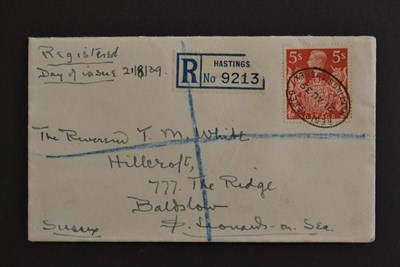 Registered
Day of issue 21/8/39.
HASTINGS
R No 9213
5s 5s
The Reverend T. M. White
Hillcroft,
777. The Ridge
Baldslow
Sussex St. Leonards-on-Sea.